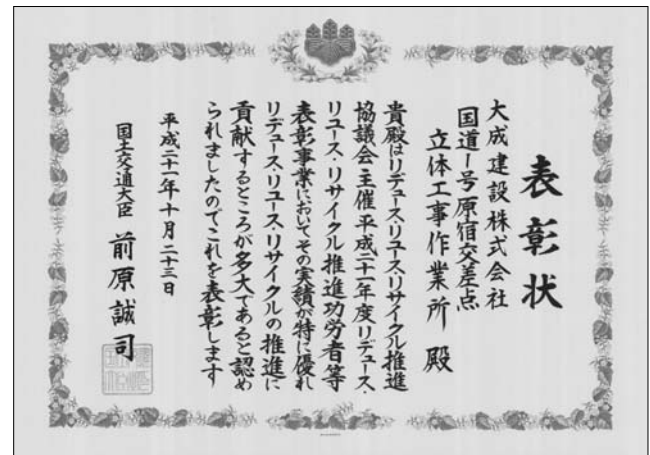 表彰状
大成建設株式会社
国道1号原宿交差点
立体工事作業所 殿
貴殿はリデュース・リユース・リサイクル推進
協議会主催平成二十一年度リデュース・
リユース・リサイクル推進功労者等
表彰事業においてその実績が特に優れ
リデュース・リユース・リサイクルの推進に
貢献するところが多大であると認め
られましたのでこれを表彰します
平成二十一年十月二十三日
国土交通大臣 前原誠司